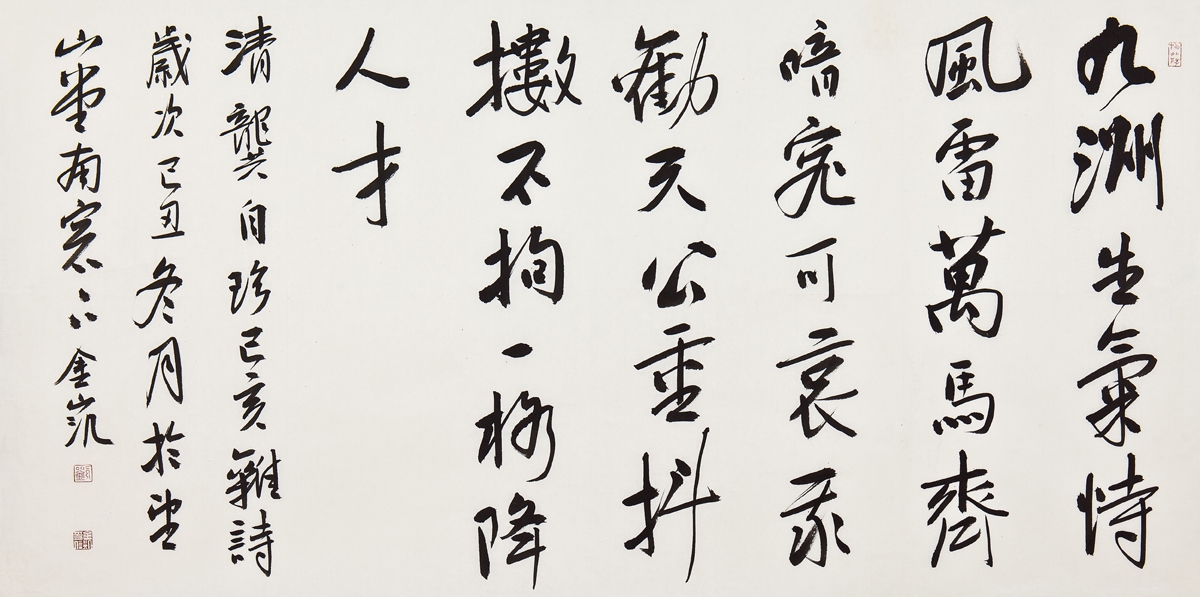 九洲生氣恃
風雷萬馬齊
喑究可哀我
勸天公重抖
擻不拘一格降
人才
清龔自珍己亥雜詩
歲次己丑冬月於望
山堂南窗下金